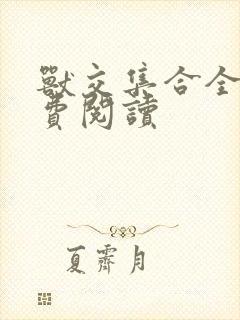 獸交集合全
費閱讀
夏霽月